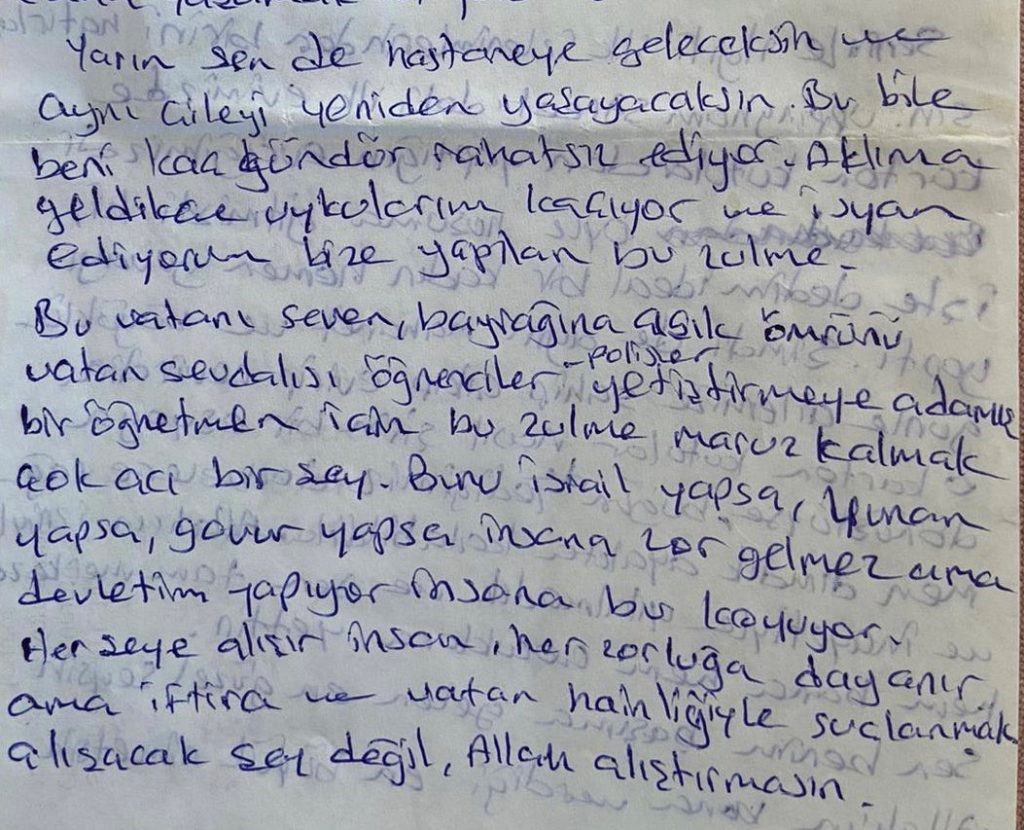 Yarın sen de hastaneye geleceksin ve
aynı çileyi yeniden yaşayacaksın. Bu bile
beni kaç gündür rahatsız ediyor. Aklıma
geldikçe uykularım kaçıyor ve isyan
ediyorum bize yapılan bu zulme.
Bu vatanı seven, bayrağına aşık ömrünü
vatan sevdalısı öğrenciler - polisler yetiştirmeye adamış
bir öğretmen için bu zulme maruz kalmak
çok acı bir şey. Bunu israil yapsa, Yunan
yapsa, gavur yapsa insana zor gelmez ama
devletim yapıyor insana bu koyuyor.
Herşeye alışır insan, her zorluğa dayanır
ama iftira ve vatan hainliğiyle suçlanmak
alışacak şey değil, Allah alıştırmasın.